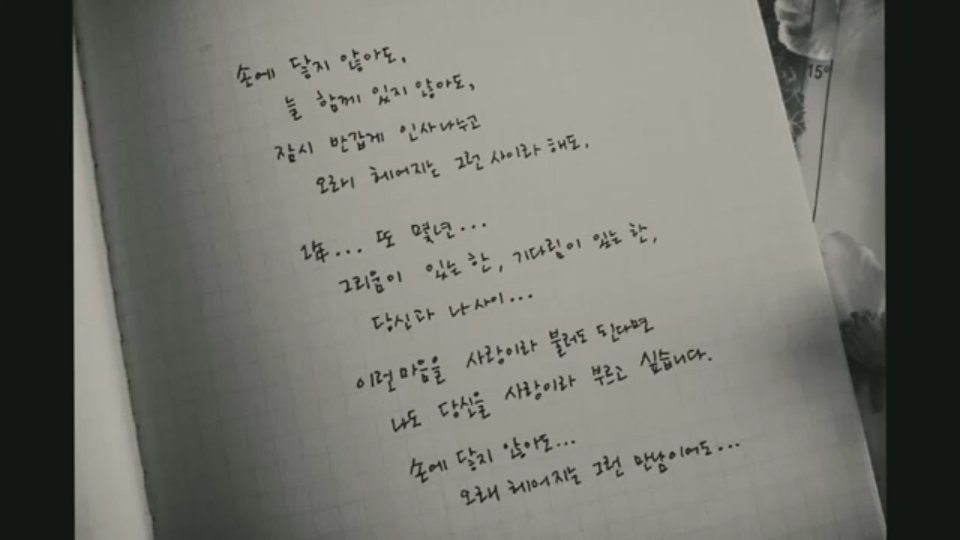 손에 닿지 않아도,
늘 함께 있지 않아도,
잠시 반갑게 인사나누고
오래 헤어지는 그런 사이라 해도,
1年... 또 몇년...
그리움이 있는 한, 기다림이 있는 한,
당신과 나 사이...
이런 마음을 사랑이라 불러도 된다면
나도 당신을 사랑이라 부르고 싶습니다.
손에 닿지 않아도...
오래 헤어지는 그런 만남이어도...
15°